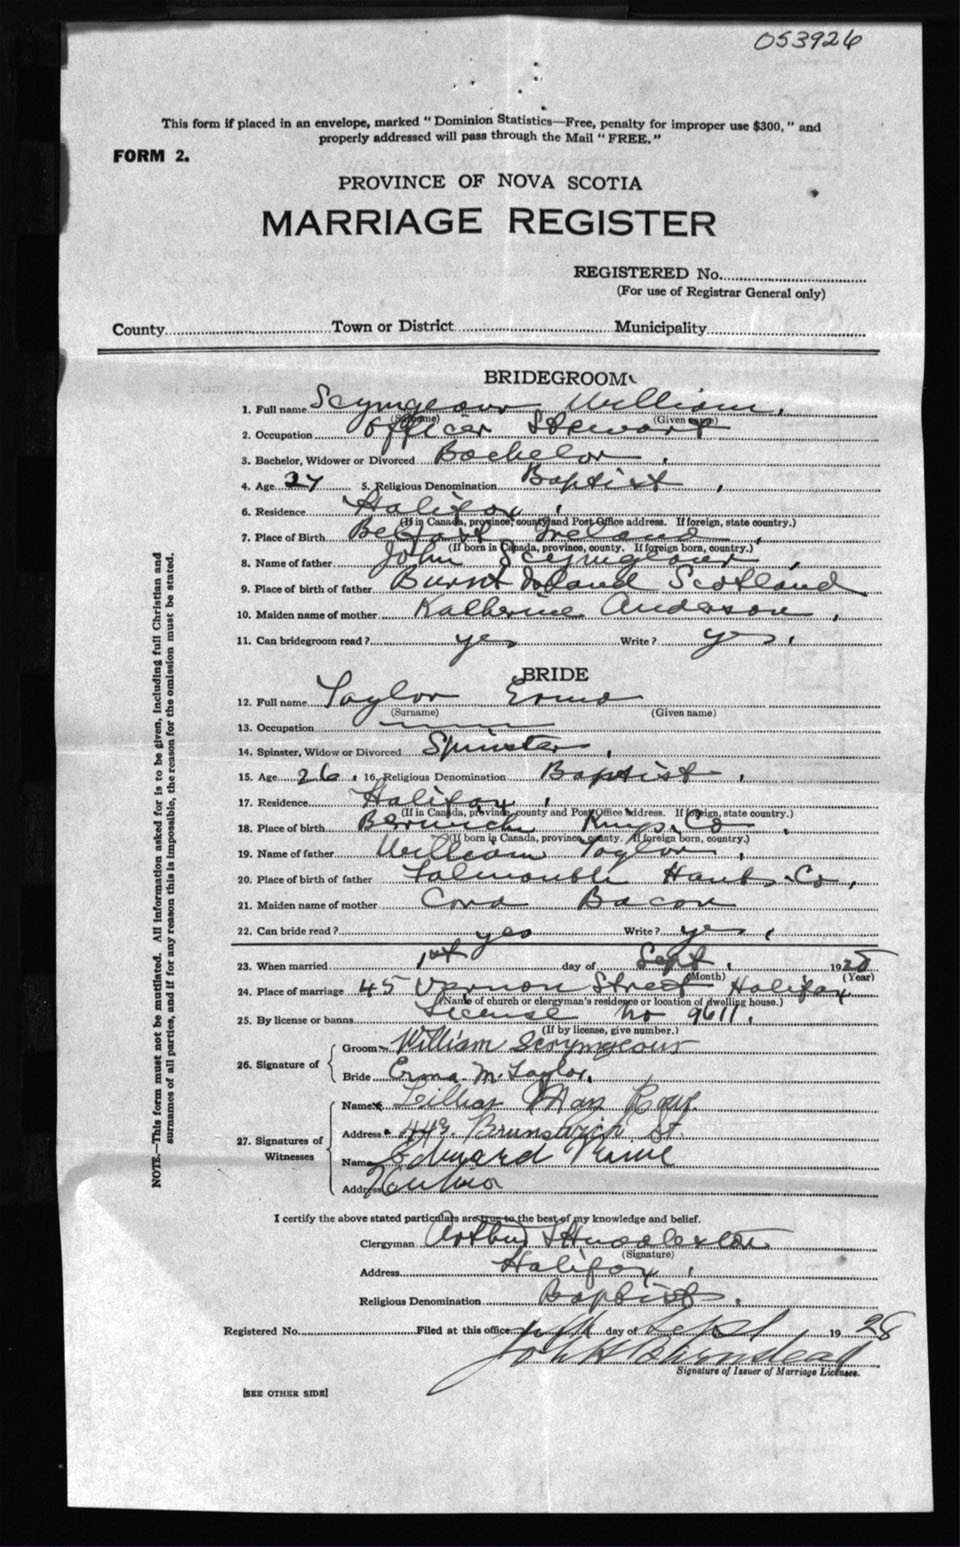 053926
This form if placed in an envelope, marked "Dominion Statistics—Free, penalty for improper use $300," and
properly addressed will pass through the Mail "FREE."
FORM 2.
PROVINCE OF NOVA SCOTIA
MARRIAGE REGISTER
REGISTERED No.
(For use of Registrar General only)
County Town or District Municipality
BRIDEGROOM
1. Full name Scymgeour William.
(Surname) (Given name)
2. Occupation Officer Steward
3. Bachelor, Widower or Divorced Bachelor.
4. Age 27 5. Religious Denomination Baptist.
6. Residence Halifax.
(If in Canada, province, county and Post Office address. If foreign, state country.)
7. Place of Birth Belfast Ireland
(If born in Canada, province, county. If foreign born, country.)
8. Name of father John Scymgeour
9. Place of birth of father Burnt Island Scotland
10. Maiden name of mother Katherine Anderson,
11. Can bridegroom read? yes Write? yes.
BRIDE
12. Full name Taylor Erma
(Surname) (Given name)
13. Occupation
14. Spinster, Widow or Divorced Spinster.
15. Age 26. 16. Religious Denomination Baptist.
17. Residence Halifax.
(If in Canada, province, county and Post Office Address. If foreign, state country.)
18. Place of birth Berwick Kings Co
(If born in Canada, province, county. If foreign born, country.)
19. Name of father William Taylor,
20. Place of birth of father Falmouth Hants Co,
21. Maiden name of mother Cora Bacon
22. Can bride read? yes Write? yes.
23. When married 1st day of Sept. 1928
(Month) (Year)
24. Place of marriage 45 Vernon Street Halifax
(Name of church or clergyman's residence or location of dwelling house.)
25. By license or banns License No 9611.
(If by license, give number.)
26. Signature of Groom William Scrymgeour
Bride Erma M. Taylor.
27. Signatures of Witnesses Name Lillian May
Address 443 Brunswick St.
Name Edward
Address
I certify the above stated particulars are true to the best of my knowledge and belief.
Clergyman Arthur
(Signature)
Address Halifax.
Religious Denomination Baptist.
Registered No. Filed at this office day of Sept 1928
Signature of Issuer of Marriage Licenses.
[SEE OTHER SIDE]
NOTE.—This form must not be mutilated. All information asked for is to be given, including full Christian and
surnames of all parties, and if for any reason this is impossible, the reason for the omission must be stated.